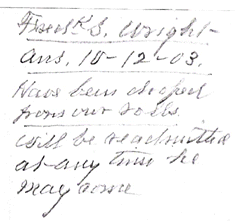 Fred K S. Wright
Ans. 10-12-03.
Have been droped
from our rolls.
Will be readmitted
at any time he
may come